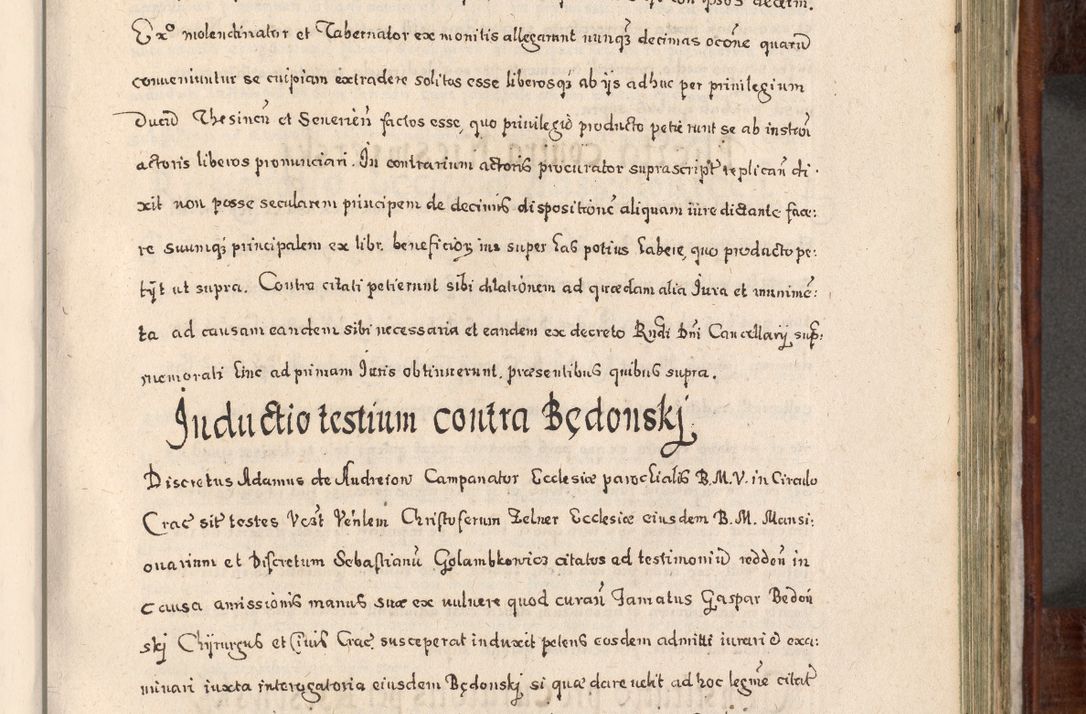 Ex° molendinator et Tabernator ex monitis allegarunt nunqz decimas ocõne quarũ
conueniuntur se cuipiam extradere solitos esse liberosqz ab ijs adhuc per priuilegium
Ducũ Thesineñ et Seuerieñ factos esse, quo priuilegio producto petierunt se ab instãti
actoris liberos pronunciari. In contrarium actoris procurator suprascript replicañ di:
xit non posse secularem principem de decimis dispositionẽ aliquam iure dictante face:
re suumqz principalem ex libr. beneficiorz ius super has potius habere, quo producto pe:
tijt ut supra. Contra citati petierunt sibi dilationem ad quædam alia Jura et munimẽ:
ta ad causam eandem sibi necessaria et eandem ex decreto Rndi Dni Cancellarij sup:
memorati hinc ad primam Juris obtinuerunt, præsentibus quibus supra.
Inductio testium contra Będonskj
Discretus Adamus de Andreiow Campanator Ecclesiæ parochialis B.M.V. in Circulo
Crac sit testes Vest Veñlem Christoferum Zelner Ecclesiæ eiusdem B.M. Mansi:
onarium et Discretum Sebastianũ Golambkowicz citatos ad testimoniũ reddeñ in
causa amissionis manus suæ ex vulnere quod curañ Famatus Gaspar Będon
skj Chijrurgus et Ciuis Crac susceperat induxit petens eosdem admitti iurari et exa:
minari iuxta interogatoria eiusdem Będonskj si quæ dare velit ad hoc legmẽ citat